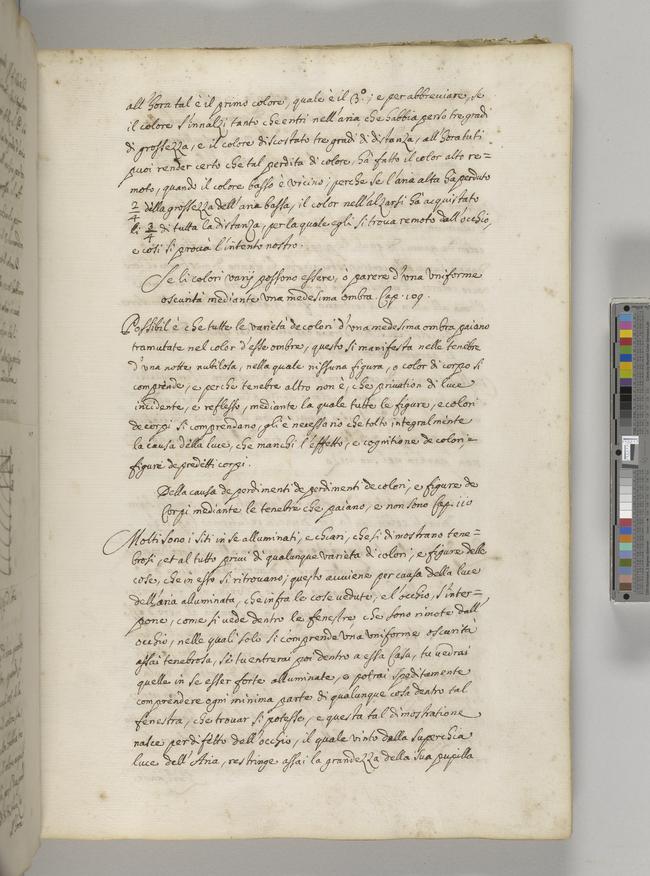 all'hora tal è il primo colore, quale è il 3.º; e per abbreviare, se
il colore s'innalzi tanto che entri nell'aria che habbia perso tre gradi
di grossezza, e il colore discostato tre gradi di distanza, all'hora tu ti
puoi render certo che tal perdita di colore, hà fatto il color alto re=
moto, quando il colore basso è vicino; perche se l'aria alta hà perduto
2/4 della grossezza dell'aria bassa, il color nell'alzarsi hà acquistato
3/4 di tutta la distanza, per la quale egli si trova remoto dall'occhio,
e cosi si prova l'intento nostro.
Se li colori varij possono essere, ò parere d'una uniforme
oscurità mediante una medesima ombra. Cap. 109.
Possibil è che tutte le varietà de colori d'una medesima ombra paiano
tramutate nel color d'esse ombre, questo si manifesta nelle tenebre
d'una notte nubilosa, nella quale nissuna figura, o color di corpo si
comprende, e perche tenebre altro non è, che privation di luce
incidente, e reflesso, mediante la quale tutte le figure, e colori
de corpi si comprendano, gli è necessario che tolto integralmente
la causa della luce, che manchi l'effetto, e cognitione de colori e
figure de predetti corpi.
Della causa de perdimenti de perdimenti de colori, e figure de
Corpi mediante le tenebre che paiano, e non sono Cap. 110
Molti sono i siti in se alluminati, e chiari, che si dimostrano tene=
brosi, et al tutto privi di qualunque varietà di colori, e figure delle
cose, che in esso si ritrovano; questo avviene per causa della luce
dell'aria alluminata, che infra le cose vedute, e l'occhio, s'inter=
pone, come si vede dentro le fenestre che sono rimote dall'
occhio, nelle quali solo si comprende una uniforme oscurità
assai tenebrosa, se tu entrerai poi dentro a essa Casa, tu vedrai
quelle in se esser forte alluminate, e potrai speditamente
comprendere ogni minima parte di qualunque cosa dentro tal
fenestra, che trovar si potesse, e questa tal dimostratione
nasce per difetto dell'occhio, il quale vinto dalla superchia
luce dell'Aria, restringe assai la grandezza della sua pupilla